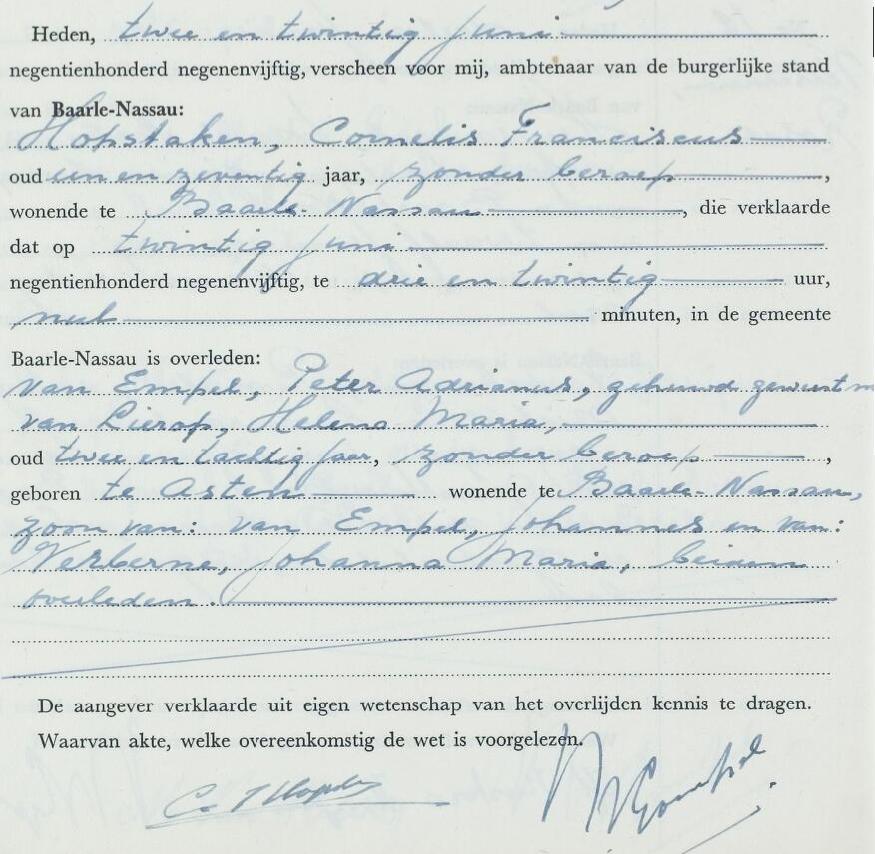 Heden, twee en twintig juni
negentienhonderd negenenvijftig, verscheen voor mij, ambtenaar van de burgerlijke stand
van Baarle-Nassau:
Hopstaken, Cornelis Franciscus
oud een en zeventig jaar, zonder beroep,
wonende te Baarle-Nassau, die verklaarde
dat op twintig juni
negentienhonderd negenenvijftig, te drie en twintig uur,
nul minuten, in de gemeente
Baarle-Nassau is overleden:
van Empel, Peter Adrianus, gehuwd geweest m
van Lierop, Helena Maria,
oud twee en tachtig jaar, zonder beroep,
geboren te Asten wonende te Baarle-Nassau,
zoon van: van Empel, Johannes en van:
Verberne, Johanna Maria, beiden
overleden.
De aangever verklaarde uit eigen wetenschap van het overlijden kennis te dragen.
Waarvan akte, welke overeenkomstig de wet is voorgelezen.